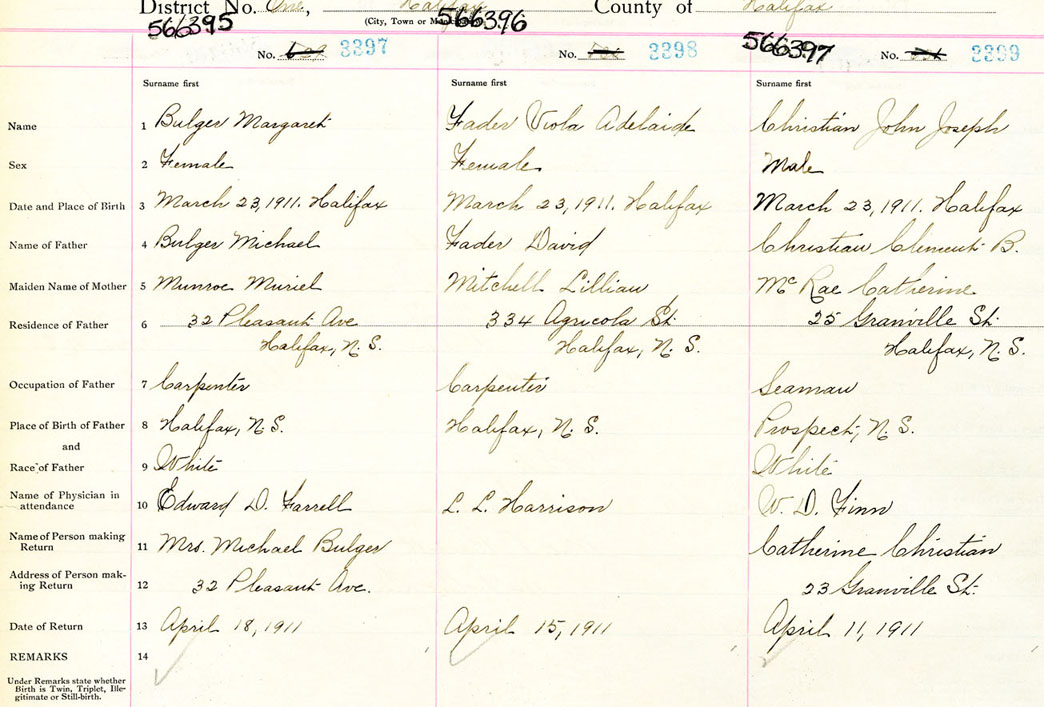 District No. One, Halifax County of Halifax
(City, Town or
566395 566396 566397
No. 3397 No. 3398 No. 3399
Surname first Surname first Surname first
Name 1 Bulger Margaret Fader Viola Adelaide Christian John Joseph
Sex 2 Female Female Male
Date and Place of Birth 3 March 23, 1911. Halifax March 23, 1911. Halifax March 23, 1911. Halifax
Name of Father 4 Bulger Michael Fader David Christian Clement B.
Maiden Name of Mother 5 Munroe Muriel Mitchell Lillian McRae Catherine
Residence of Father 6 32 Pleasant Ave 334 Agricola St. 25 Granville St.
Halifax, N.S. Halifax, N.S. Halifax, N.S.
Occupation of Father 7 Carpenter Carpenter Seaman
Place of Birth of Father 8 Halifax, N.S. Halifax, N.S. Prospect, N.S.
and
Race of Father 9 White White
Name of Physician in
attendance 10 Edward D. Farrell L. L. Harrison W. D. Finn
Name of Person making
Return 11 Mrs. Michael Bulger Catherine Christian
Address of Person mak-
ing Return 12 32 Pleasant Ave. 23 Granville St.
Date of Return 13 April 18, 1911 April 15, 1911 April 11, 1911
REMARKS 14
Under Remarks state whether
Birth is Twin, Triplet, Ille-
gitimate or Still-birth.